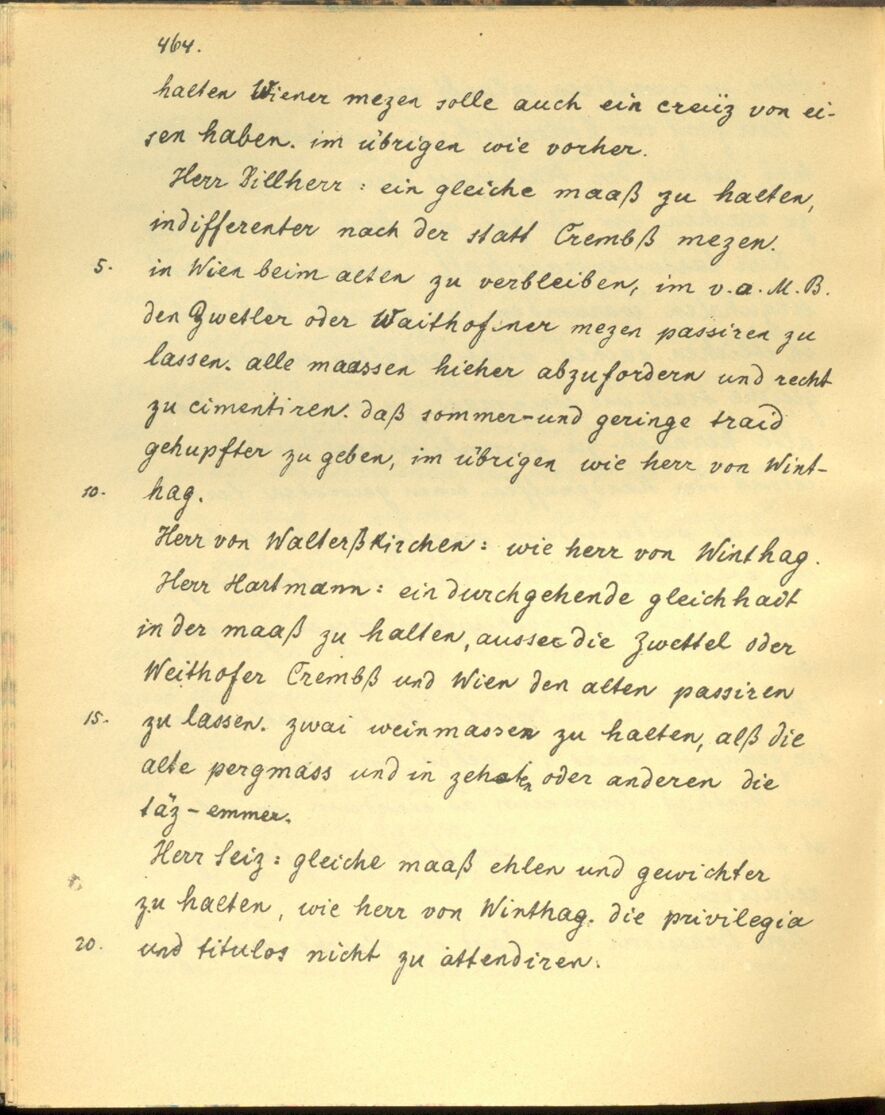 464.
halten Wiener mezen solle auch ein creüz von ei-
sen haben. im übrigen wie vorher.
Herr Dillherr: ein gleiche maaß zu halten,
indifferenter nach der statt Crembß mezen.
5. in Wien beim alten zu verbleiben, im v.o.M.B.
den Zwetler oder Waithofner mezen passiren zu
lassen. alle maassen hieher abzufordern und recht
zu cimentiren. daß sommer-und geringe traid
gehupfter zu geben, im übrigen wie herr von Wint-
10. hag.
Herr von Walterßkirchen: wie herr von Winthag.
Herr Hartmann: ein durchgehende gleichhait
in der maaß zu halten, ausser die Zwettel oder
Weithofer Crembß und Wien den alten passiren
15. zu lassen. zwai weinmassen zu halten, alß die
alte pergmass und in zehaten oder anderen die
täz-emmer.
Herr Seiz: gleiche maaß ehlen und gewichter
zu halten, wie herr von Winthag. die privilegia
20. und titulos nicht zu attendiren.